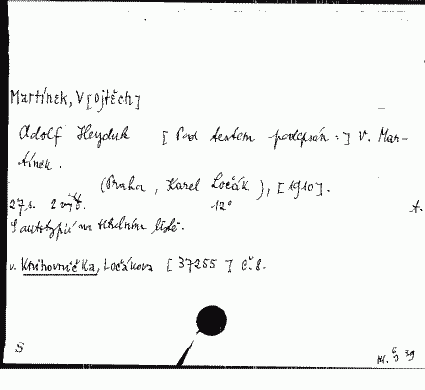 Martínek, V[ojtěch]
Adolf Heyduk [Pod textem podepsán:] V. Mar-
tínek.
(Praha, Karel Ločák), [1910].
27 s. 2 výt. 12° A.
S autotypií na titulním listě.
v. Knihovnička, Ločákova [37255] č. 8.
S